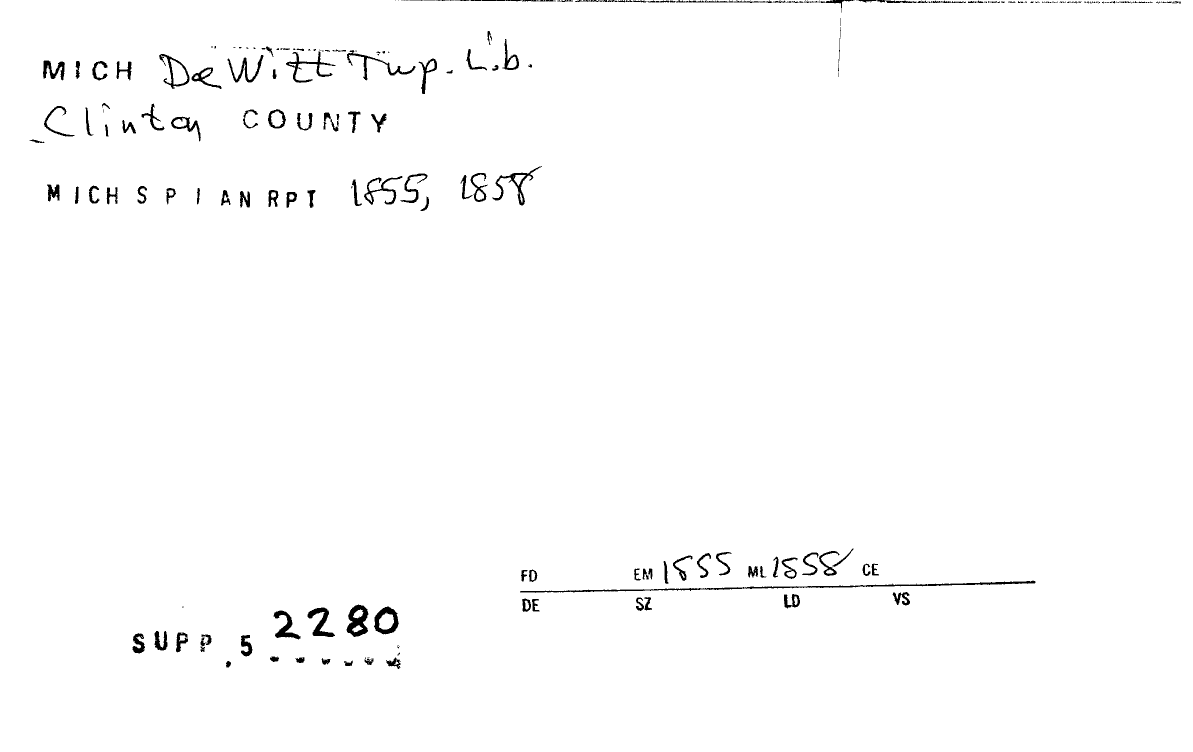 MICH DeWitt Twp. Lib.
Clinton COUNTY
MICH SPI AN RPT 1855, 1858
FD EM 1855 ML 1858 CE
DE SZ LD VS
SUPP.5 2280